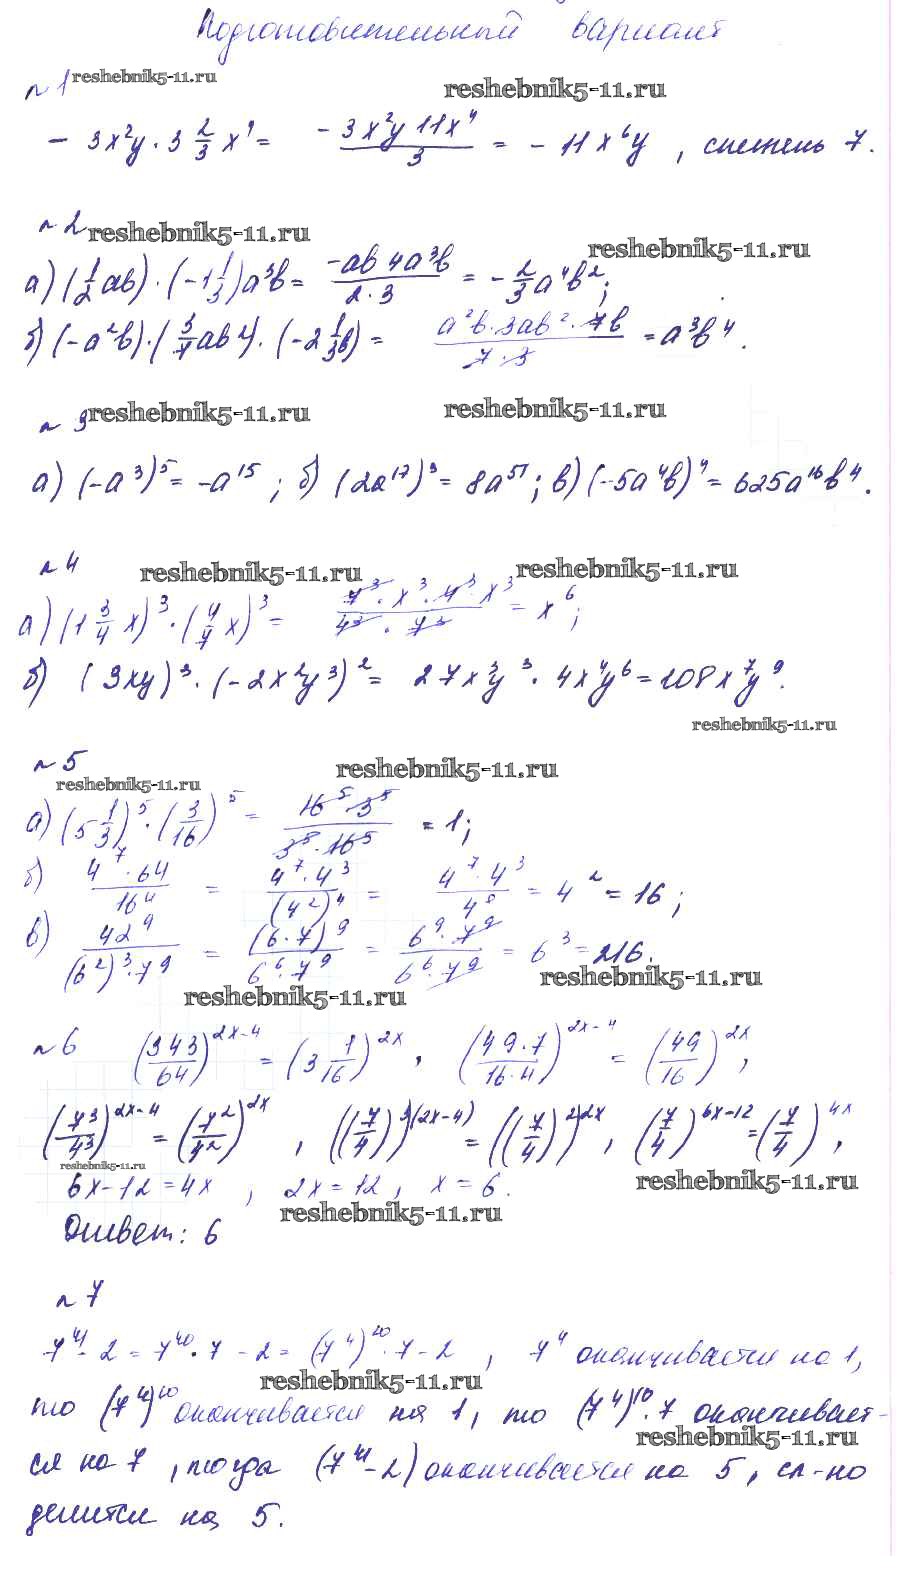 Подготовительный вариант
№1 reshebnik5-11.ru reshebnik5-11.ru
- 3x²y · 3 2/3 x⁴ = - 3x²y 11x⁴ / 3 = - 11x⁶y, степень 7.
№2 reshebnik5-11.ru reshebnik5-11.ru
а) (1/2 ab) · (-1 1/3) a³b = -ab 4a³b / 2·3 = - 2/3 a⁴b²;
б) (-a²b) · (3/7 ab²) · (-2 1/3 b) = a²b · 3ab² · 7b / 7·3 = a³b⁴.
№3 reshebnik5-11.ru reshebnik5-11.ru
а) (-a³)⁵ = -a¹⁵; б) (2a¹⁷)³ = 8a⁵¹; в) (-5a⁴b)⁴ = 625a¹⁶b⁴.
№4 reshebnik5-11.ru reshebnik5-11.ru
а) (1 3/4 x)³ · (4/7 x)³ = 7³ · x³ · 4³ · x³ / 4³ · 7³ = x⁶;
б) (3xy)³ · (-2x²y³)² = 27x³y³ · 4x⁴y⁶ = 108x⁷y⁹.
reshebnik5-11.ru
№5 reshebnik5-11.ru
reshebnik5-11.ru
а) (5 1/3)⁵ · (3/16)⁵ = 16⁵ · 3⁵ / 3⁵ · 16⁵ = 1;
б) 4⁷ · 64 / 16⁴ = 4⁷ · 4³ / (4²)⁴ = 4⁷ · 4³ / 4⁸ = 4² = 16;
в) 42⁹ / (6²)³ · 7⁹ = (6·7)⁹ / 6⁶ · 7⁹ = 6⁹ · 7⁹ / 6⁶ · 7⁹ = 6³ = 216.
reshebnik5-11.ru reshebnik5-11.ru
№6 (343/64)²ˣ⁻⁴ = (3 1/16)²ˣ, (49·7 / 16·4)²ˣ⁻⁴ = (49/16)²ˣ,
(7³/4³)²ˣ⁻⁴ = (7²/4²)²ˣ, ((7/4)³)⁽²ˣ⁻⁴⁾ = ((7/4)²)²ˣ, (7/4)⁶ˣ⁻¹² = (7/4)⁴ˣ,
reshebnik5-11.ru reshebnik5-11.ru
6x-12 = 4x, 2x = 12, x = 6.
reshebnik5-11.ru
Ответ: 6
№7
7⁴¹ - 2 = 7⁴⁰ · 7 - 2 = (7⁴)¹⁰ · 7 - 2, 7⁴ оканчивается на 1,
reshebnik5-11.ru
то (7⁴)¹⁰ оканчивается на 1, то (7⁴)¹⁰ · 7 оканчивает-
reshebnik5-11.ru
ся на 7, тогда (7⁴¹ - 2) оканчивается на 5, сл-но
делится на 5.